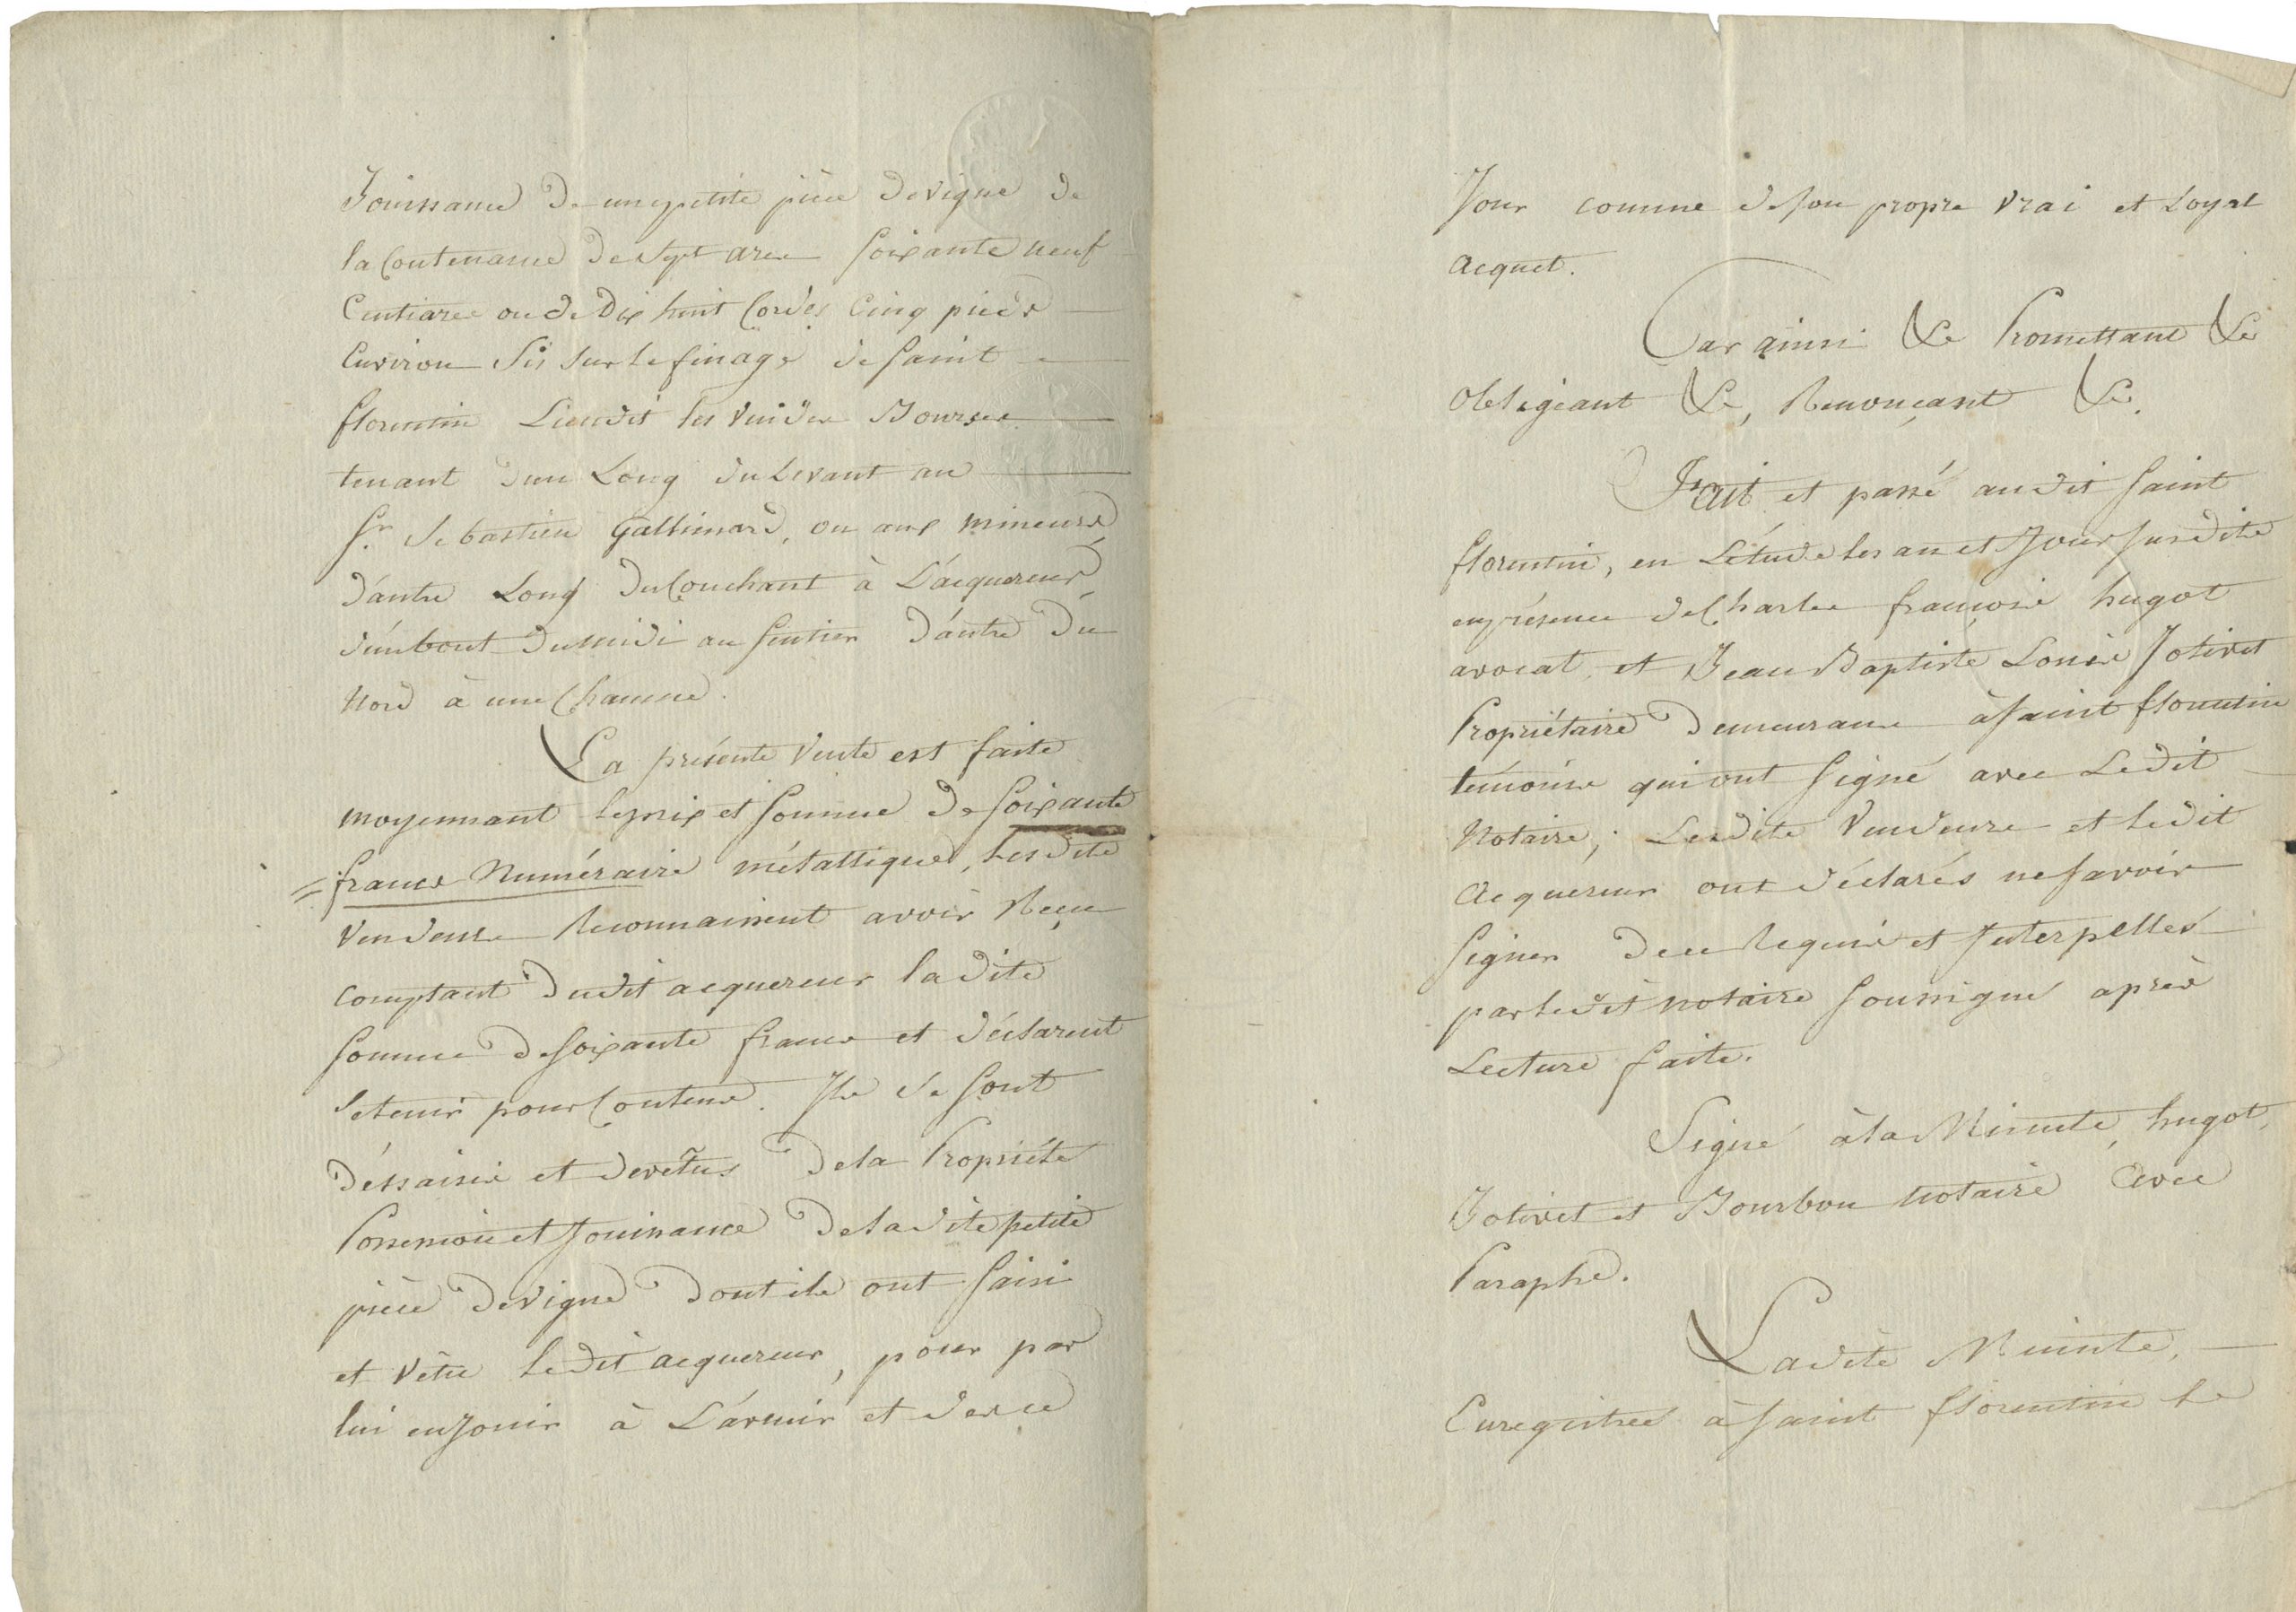 Jouissance de une petite pièce de vigne de
la Contenance de Sept ares soixante neuf
Centiares ou de Dix huit Cordes Cinq pieds
Environ Sis sur le finage de saint
florentin Lieudit les Vuides Bourses
tenant d'un Long du Levant au
Sr. Sebastien Gallimard, ou aux mineurs
d'autre Long du Couchant à L'acquereur,
d'un bout du midi au Sentier d'autre du
Nord à une Chaume.
La présente Vente est faite
moyennant le prix et somme de soixante
francs Numéraire métallique, Lesdits
Vendeurs Reconnaissent avoir Reçu
comptant dudit acquereur la dite
somme de soixante francs et déclarent
se tenir pour Contens. Ils se sont
déssaisis et devêtus de la Propriété
Possession et Jouissance de la dite petite
pièce de Vigne dont ils ont saisi
et Vêtu ledit acquereur, pour par
lui en Jouir à L'avenir et de ce
Jour comme de son propre Vrai et Loyal
acquet.
Car ainsi &c Promettant &c
Obligeant &c, Renonçant &c.
Fait et passé audit saint
florentin, en L'étude les an et Jour susdits
en présence de Charles françois hugot
avocat et Jean Baptiste Louis Jolivet
Propriétaire demeurans à saint florentin
témoins qui ont signé avec Ledit
Notaire; Lesdits Vendeurs et ledit
Acquereur ont déclarés ne savoir
signer de ce Requis et Interpellés
par ledit notaire soussigné après
Lecture faite.
Signé à la Minute, hugot,
Jolivet et Bourbon notaire avec
Paraphe.
Ladite Minute,
Enregistrée à saint florentin le